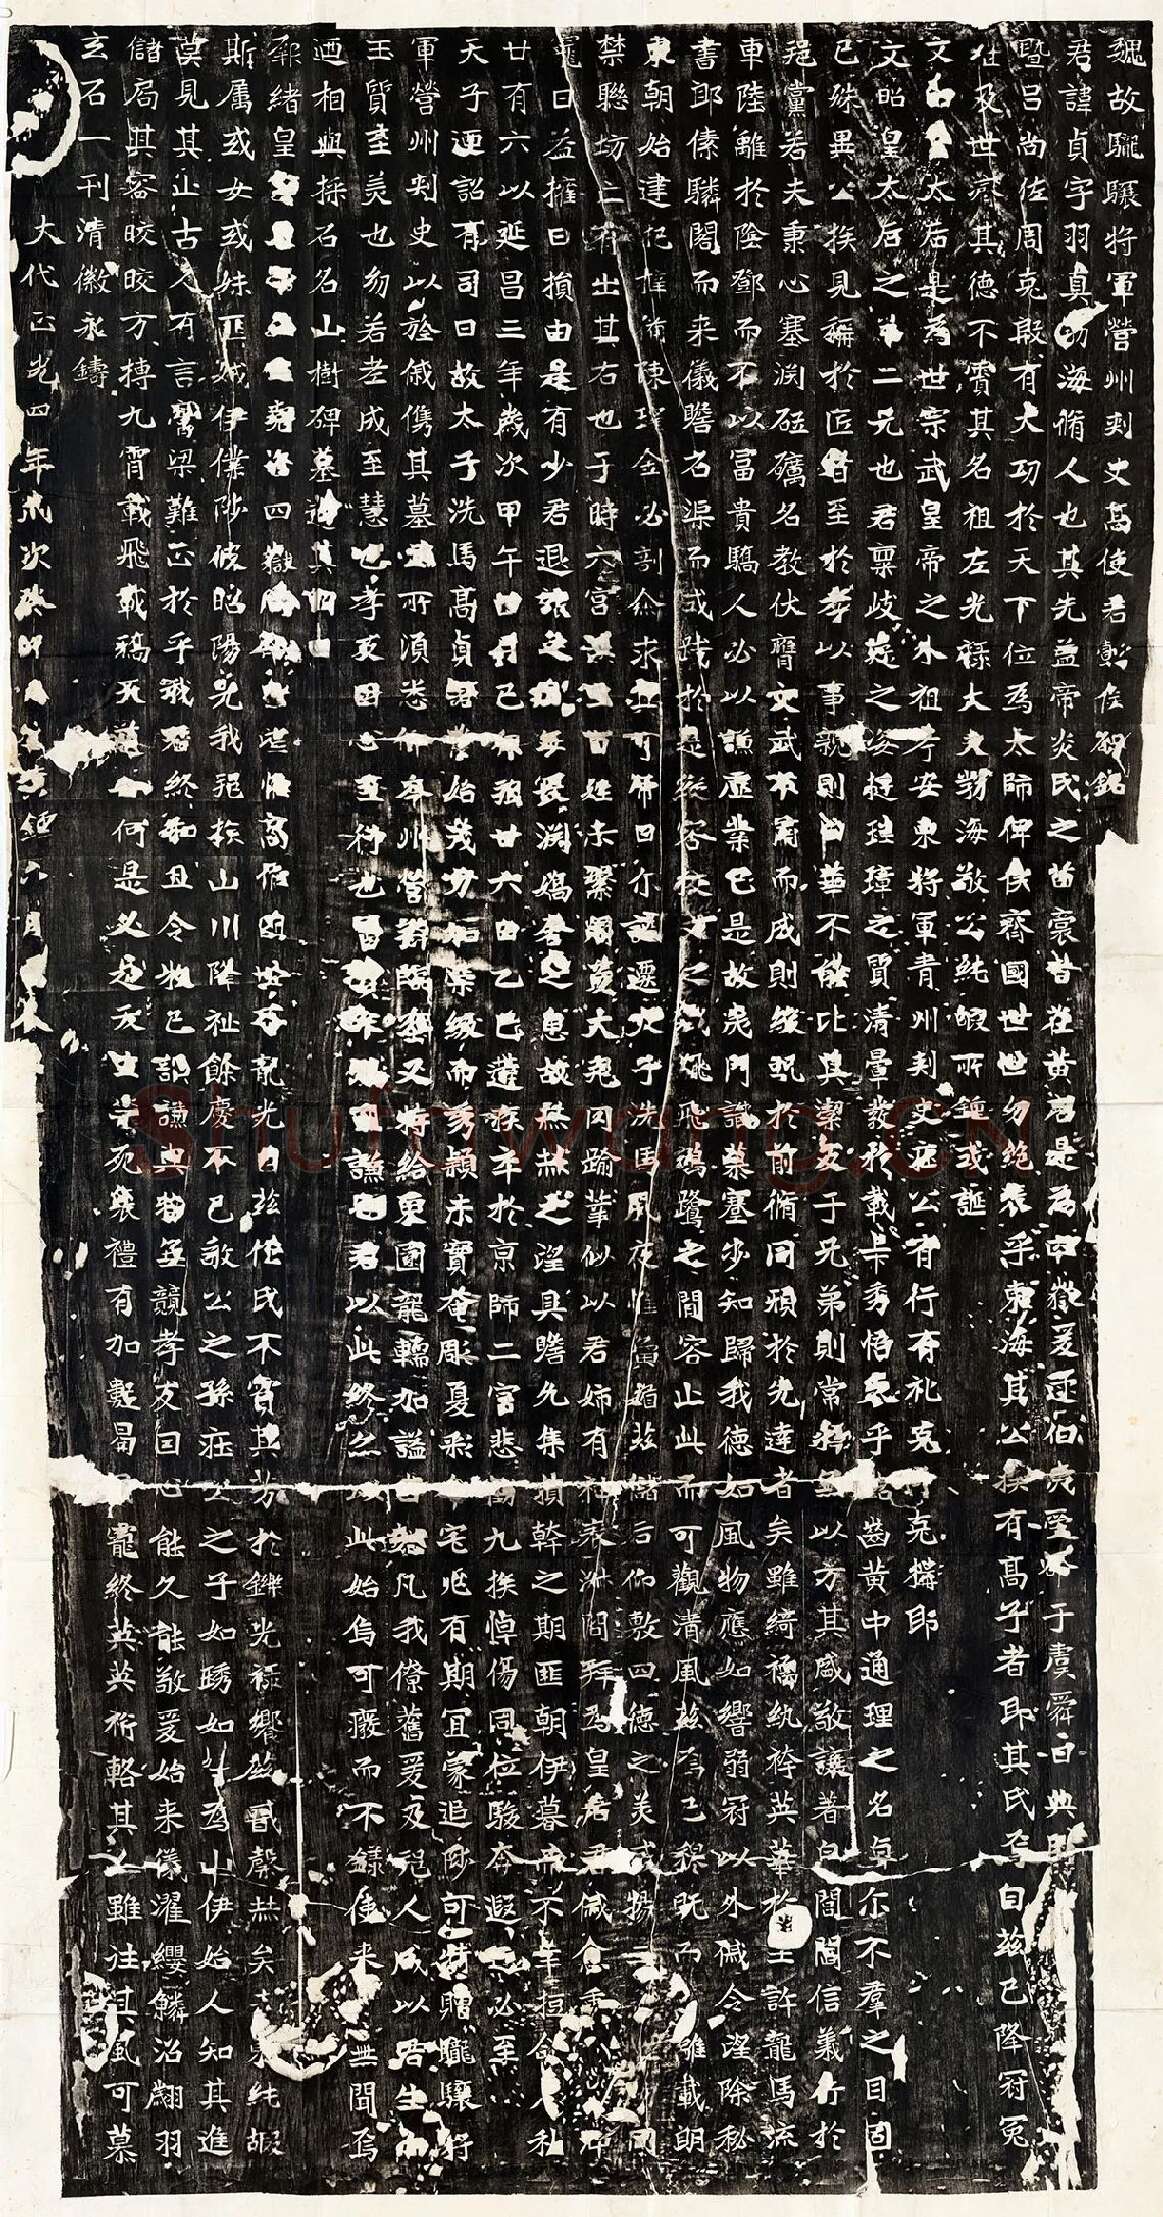 魏故驪驤將軍營州刺史高使君懿侯碑銘
君諱貞字羽真勃海脩人也其先蓋帝炎氏之苗裔昔在黃唐是為四嶽爰逮伯夷受命于虞舜曰典
暨呂尚佐周克殷有大功於天下位為太師俾侯齊國世世勿絕表乎東海其公族有高子者即其氏焉自茲已降冠冕
及世濟其德不霣其名祖左光祿大夫勃海敬公純嘏所鍾或誕
文昭皇太后是為世宗武皇帝之外祖考安東將軍青州刺史莊公有行有礼克荷克構即
文昭皇太后之第二兄也君稟岐嶷之姿挺珪璋之質清暈發於載卡秀悟表乎齒黃中通理之名卓尓不羣之目固
已殊異公族見稱於匠者至於孝以事親則曾華不能比其潔友于兄弟則常棣無以方其盛敬讓著自閨閤信義行於
邦黨若夫秉心塞淵砥礪名教伏膺文武不肅而成則綴旒於前脩同頹於先達者矣雖綺襦紈袴英華於王許龍馬流
車陸離於陰鄧而不以富貴驕人必以謙虛業己是故夷門識慕塞少知歸我德如風物應如響弱冠以外戚令望除秘
書郎傃驎閣而來儀瞻石渠而式踐於是從容校文之職飛鵷鷺之間容止此而可觀清風茲為已穆既而雝載朗
東朝始建杞梓備陳瑤金必剖僉求其可帝曰尓諧遷太子洗馬夙夜惟夤媚茲儲后仰敷四德之美式揚三
禁聯坊二有出其右也于時六宮百姓未繫闕大宛閃踰輦似以君姉有袟問拜為皇后君戚
寵日益擁日損由是有少君退讓之安淵嫣奢之息故喬燕之望具瞻允集損幹之期匪朝伊暮而不幸短命春秋
廿有六以延昌三年歲次甲午四月己卯朔廿六日乙巳遘疾卒於京師二宮悲慟九族悼傷同位駿奔遐邇必至
天子迺詔有司曰故太子洗馬高貞器業始茂方加榮級而秀穎未實奄彫夏彩今宅兆有期宜蒙追陟可特贈驪驤將
軍營州刺史以旌戚儁其墓所須悉仰本州營辦臨葬又特給東園龍轜加諡曰懿凡我僚舊爰及邦人咸以君生而
玉質至美也幼若老成至慧也孝友因心至行也富貴不驕至謙也君以此終亦以此始烏可廢而不錄使來世無聞焉
迺相與採石名山樹碑墓道其詞曰
緒皇堯咨四嶽周命呂望惟高作邑世有龍光自茲作氏不霣其芳於鑠光祿嚮茲聲烋矣純嘏
斯屬或女或妹匹娥伊僕陟彼昭陽光我邦族山川降祉餘慶不已敬公之孫莊公之子如琇如生為山伊始人知其進
莫見其止古人有言膏梁難正於乎我君終和且令牧己謙與物無競孝友因心能久能敬爰始來儀濯纓鱗沼翩羽
儲局其容皎皎方摶九霄載飛載矯天道如何是必友生榮死哀禮有加數曷寵終英英衎輅其人雖往其風可慕
玄石一刊清徽永鑄
大代正光四年歲次癸卯月